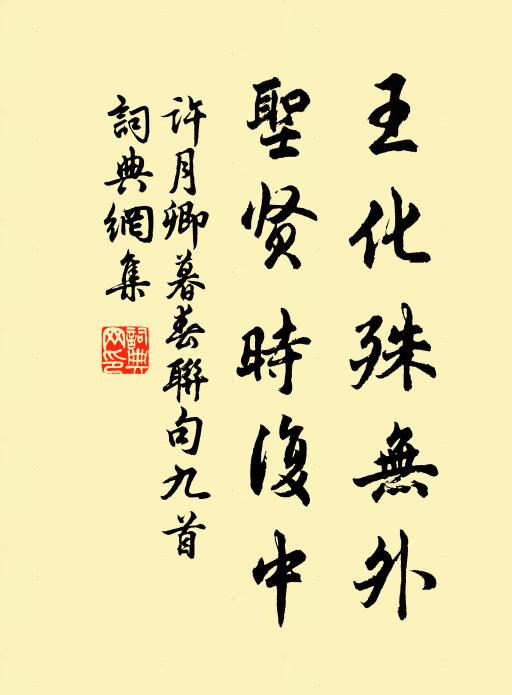 王化殊無外
聖贤時復中
許月卿暮春聯句九首
詞典網集
詞典网印